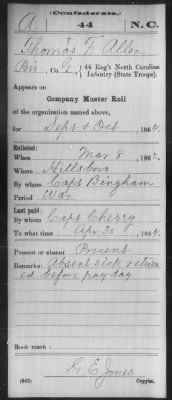 (Confederate.)
A 44 N.C.
Thomas F. Allen
Pri, Co. G, 44 Reg't North Carolina
Infantry (State Troops).
Appears on
Company Muster Roll
of the organization named above,
for Sept & Oct, 1864.
Enlisted:
When Mar 8, 1862.
Where Hillsboro
By whom Capt Bingham
Period War
Last paid:
By whom Capt Cherry
To what time Apr 30, 1864.
Present or absent Present
Remarks: Absent sick return
ed before pay day
Book mark:
G. E. Jones
(642) Copyist.